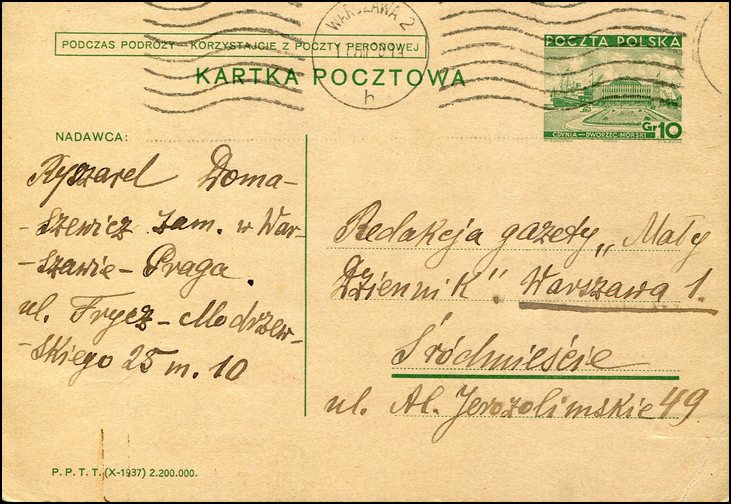 PODCZAS PODRÓŻY – KORZYSTAJCIE Z POCZTY PERONOWEJ
KARTKA POCZTOWA
WARSZAWA 2
h
POCZTA POLSKA
Gr 10
GDYNIA – DWORZEC MORSKI
NADAWCA:
Ryszard Doma-
-szewicz zam. w War-
-szawie – Praga.
ul. Frycz – Modrzew-
-skiego 25 m. 10
Redakcja gazety „Mały
Dziennik". Warszawa 1.
Śródmieście
ul. Al. Jerozolimskie 49
P. P. T. T. (X-1937) 2.200.000.